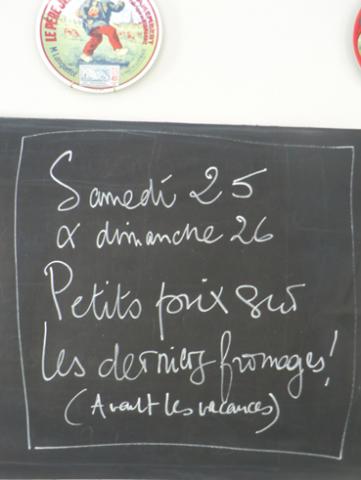 LE PÈRE
Samedi 25
& dimanche 26
Petits prix sur
les derniers fromages!
(Avant les vacances)